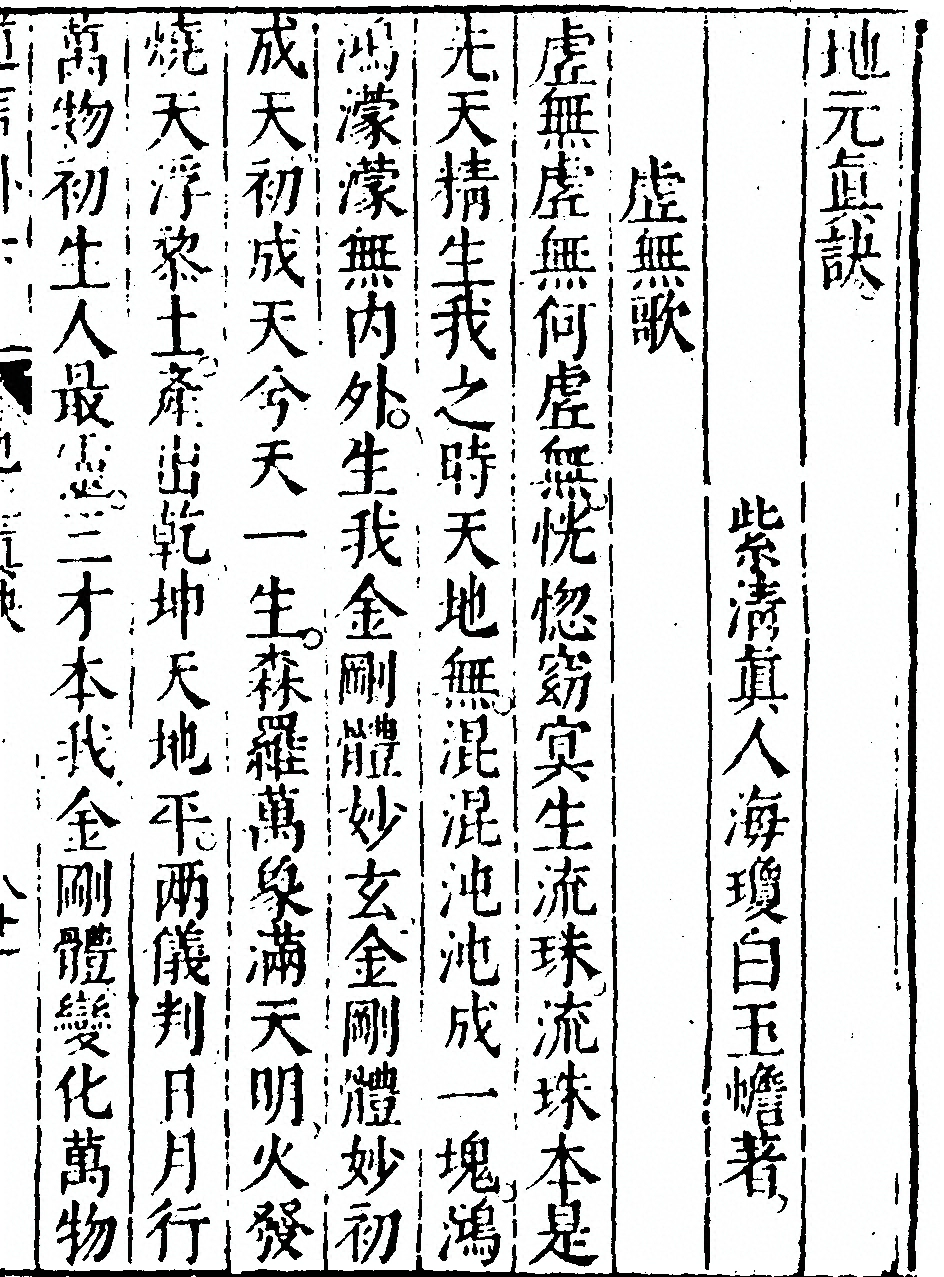 地元眞訣。
紫清眞人海瓊白玉蟾著、
虛無歌
虛無虛無何虛無。恍惚窈冥生流珠。流珠本是
先天精生我之時天地無。混混沌沌成一塊。鴻
鴻濛濛無内外。生我金剛體妙玄金剛體妙初
成天初成天兮天一生。森羅萬象滿天明、火發
燒天浮黎土。產出乾坤天地平。兩儀判日月行
萬物初生人最靈。三才本我金剛體變化萬物